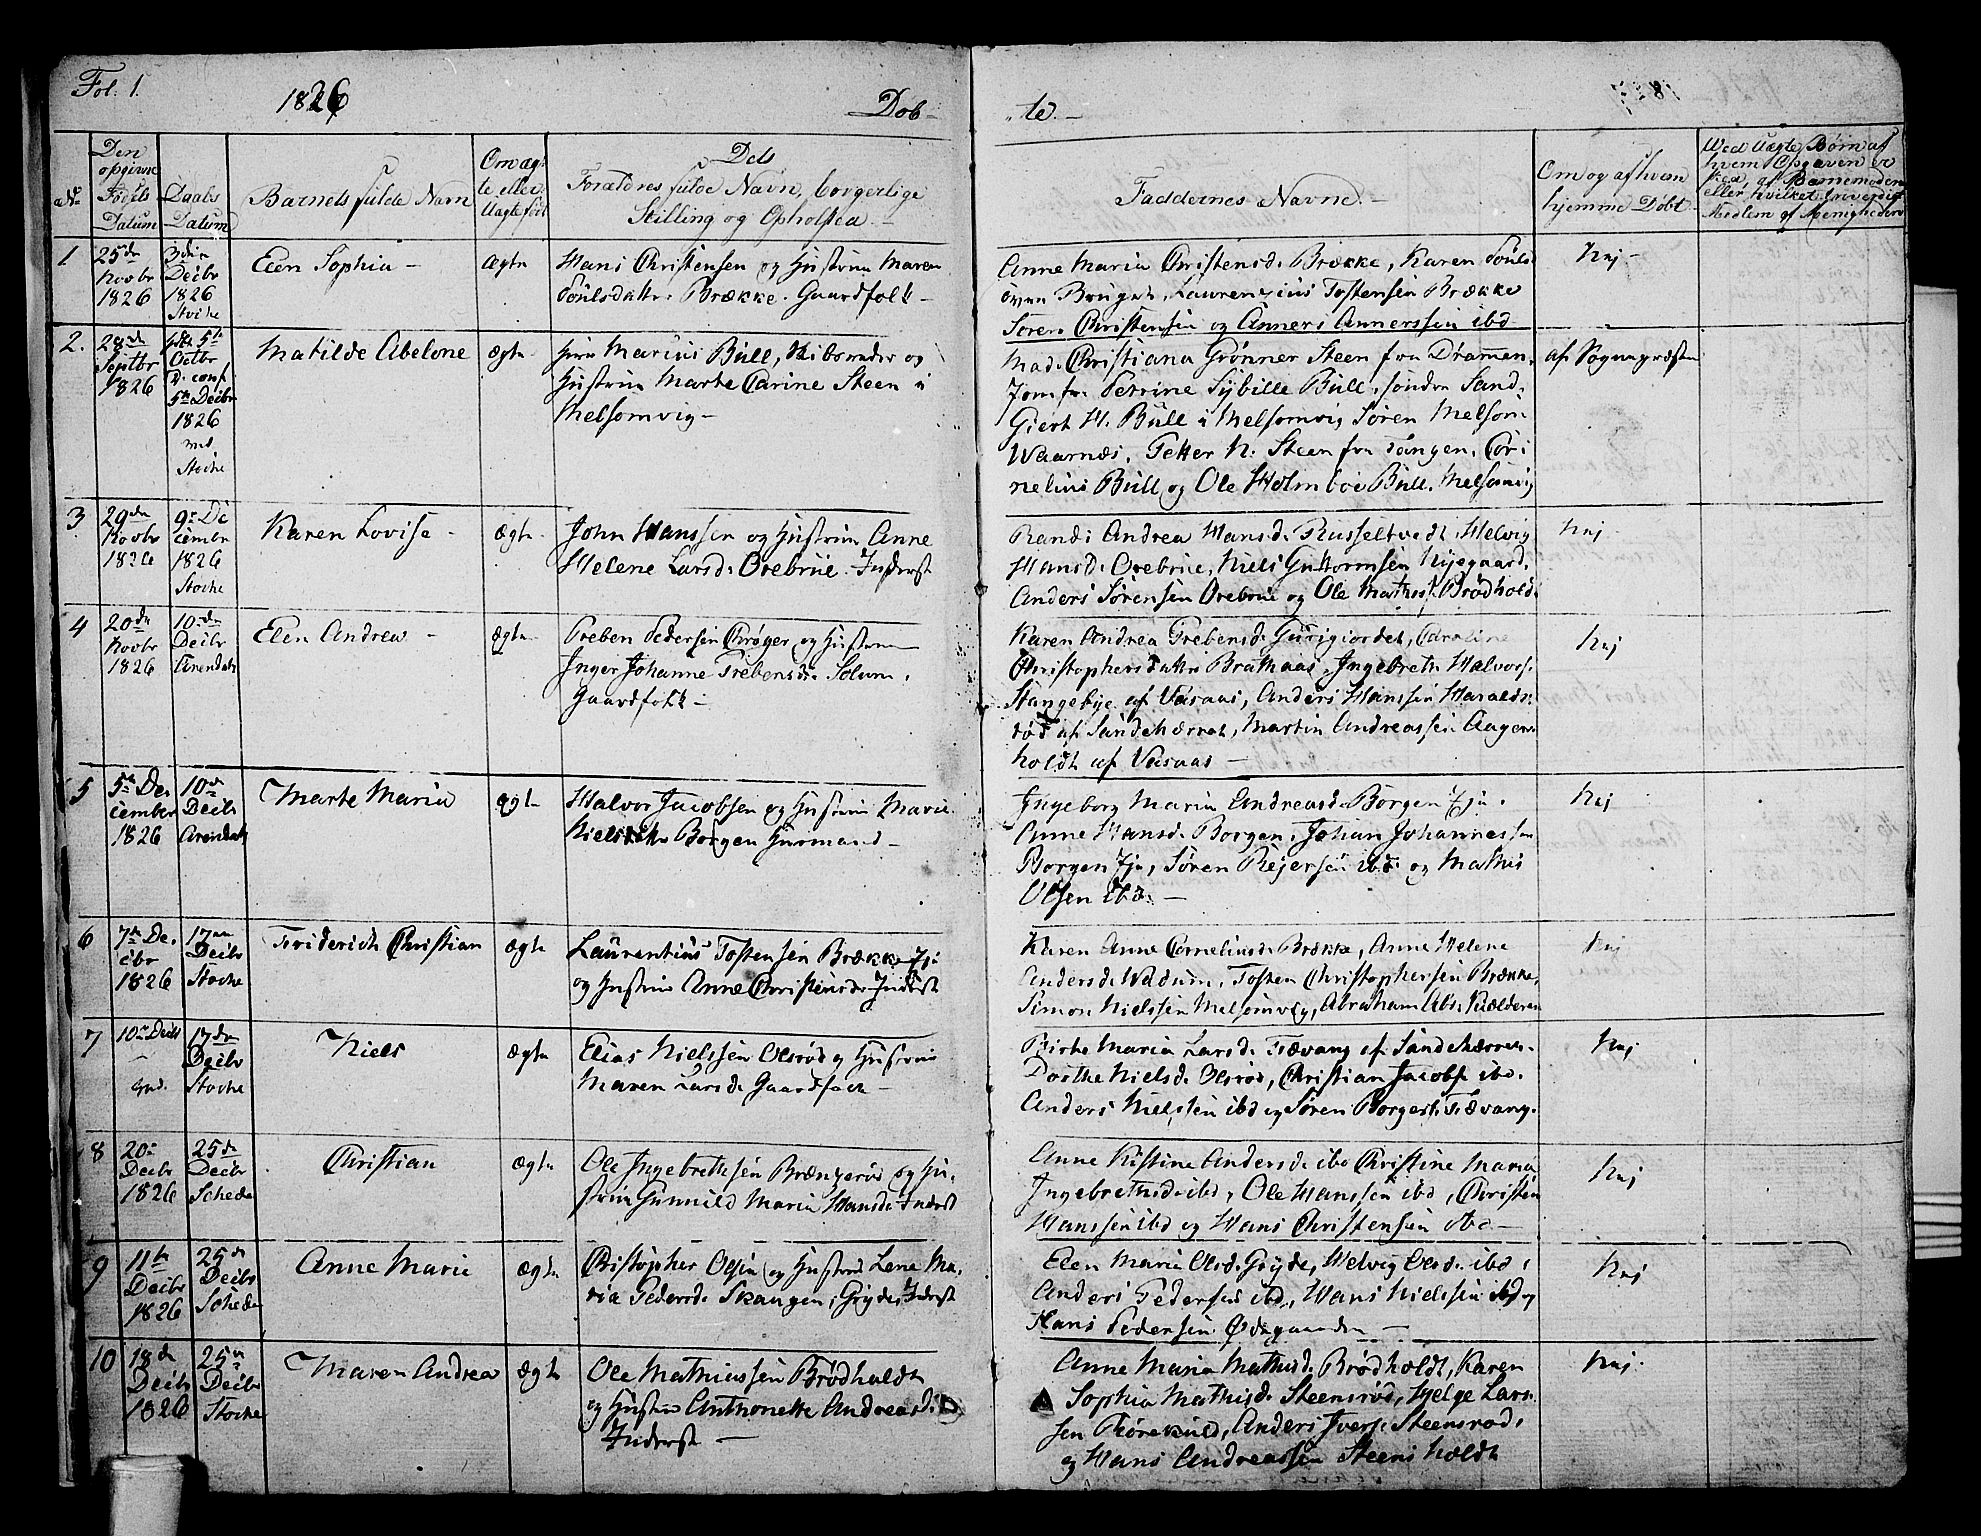 Fol. 1.
1826
Døb-
te.-
No
Den opgivne Fødsels Datum
Daabs Datum
Barnets fulde Navn
Om ægte eller Uægte født
Dets Forældres fulde Navn, borgerlige Stilling og Opholsted
Faddernes Navne.-
Om og af hvem hjemme Døbt
Ved Uægte Børn af hvem Opgaven er sked, af Barnemoderen eller hvilket troværdigt Medlem af Menigheden
1
25de Novbr 1826
3die Decbr 1826 Stocke
Elen Sophia -
Ægte
Hans Christensen og Hustrue Maren
Poulsdatter Brække. Gaardfolk -
Anne Maria Christensd. Brække, Karen Pouls
Laurenzius Tostensen Brække
Søren Christensen og Anners Annerssen ibd
Nej -
2.
28de Septbr 1826
5te Octbr D. conf. 5te Decbr 1826 Stocke
Matilde Abelone
ægte
Herr Marius Bull, Skibsreder og
Hustrue Marte Carine Steen i
Melsomvig -
Mad. Christiana Grønner Steen fra Drammen,
Jomfr. Perrine Sybille Bull, Søndre Sand.
Giert H. Bull i Melsomvig Søren Melsom
Waarnæs, Petter N. Steen fra Tangen, Cor-
nelius Bull og Ole Holmboe Bull, Melsomvig
af Sognepræsten
3
29de Novbr 1826
9de December 1826 Stocke
Karen Lovise -
ægte
John Hanssen og Hustrue Anne
Helene Larsd. Orebrue. Inderst
Randi Andrea Hansd. Russeltvedt, Helvig
Hansd. Orebrue, Niels Guttormsen Nyegaard,
Anders Sørensen Orebrue og Ole Mathiss. Brødholdt
Nej
4
20de Novbr 1826
10de Decbr Arendals
Elen Andrea -
ægte
Preben Pedersen Krøger og Hustrue
Inger Johanne Prebensd. Solum.
Gaardfolk -
Karen Andrea Prebensd. Gurigiordet, Caroline
Christophersdatter Brathaas, Ingebreth Halvors.
Stangebye af Vasaas, Anders Hanssen Haralds-
rød af Sandehærret, Martin Andreassen Aagen-
holdt af Vasaas -
Nej
5
5te December 1826
10de Decbr Arendals
Marte Maria
ægte
Halvor Jacobsen og Hustrue Marie
Nielsdatter Borgen Huusmand -
Ingeborg Maria Andreasd. Borgen Eje.
Anne Hansd. Borgen, Johan Johannessen
Borgen Eje, Søren Rejersen ibd. og Mathis
Olsen ibd. -
Nej
6
7de Decbr 1826
17de Decbr Stocke
Friderich Christian
ægte
Laurentius Tostensen Brække Eje
og Hustrue Anne Christensd. Inderst
Karen Anne Corneliusd. Brække, Anne Helene
Andersd. Waddum, Tosten Christophersen Brække,
Simon Nielssen Melsomvig, Abraham Abr. Kælderen
Nej
7
10de Decbr
17de Decbr Stocke
Niels
ægte
Elias Nielssen Olsrød og Hustrue
Maren Larsd. Gaardfolk -
Birthe Maria Larsd. Trævang af Sandehærret
Dorthe Nielsd. Olsrød, Christian Jacobs. ibd.
Anders Nielssen ibd og Søren Borgers. Trævang.
Nej
8
20de Decbr 1826
25de Decbr Schede
Christian
ægte
Ole Ingebrethsen Brængerød og Hu-
strue Gunnild Maria Hansd. Inderst
Anne Kistine Andersd. ibd Christine Maria
Ingebrethsd. ibd, Ole Hanssen ibd, Christen
Hanssen ibd og Hans Christensen ibd -
Nej
9
11te Decbr 1826
25de Decbr Schede
Anne Marie
ægte
Christopher Olsen og Hustrue Lene Ma-
ria Pedersd. Skaugen i Gryde, Inderst
Elen Maria Olsd. Gryde, Helvig Olsd. ibd,
Anders Pedersen ibd, Hans Nielssen ibd og
Hans Pedersen Ødegaarden -
Nej
10
18de Decbr 1826
25de Decbr Stocke
Maren Andrea
ægte
Ole Mathiassen Brødholdt
og Hustrue Anthonette Andreasd. ibd
Inderst -
Anne Maria Mathisd. Brødholdt, Karen
Sophia Mathisd. Steensrød, Helge Lars-
sen Rørekuld, Anders Ivers. Steensrød,
og Hans Andreassen Steensholdt
Nej.